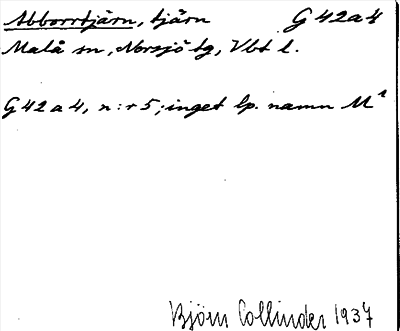 Abborrtjärn, tjärn G 42 a 4
Malå sn, Norsjö tg, Vbt l.
G 42 a 4, n:r 5; inget lp. namn M¹
Björn Collinder 1937